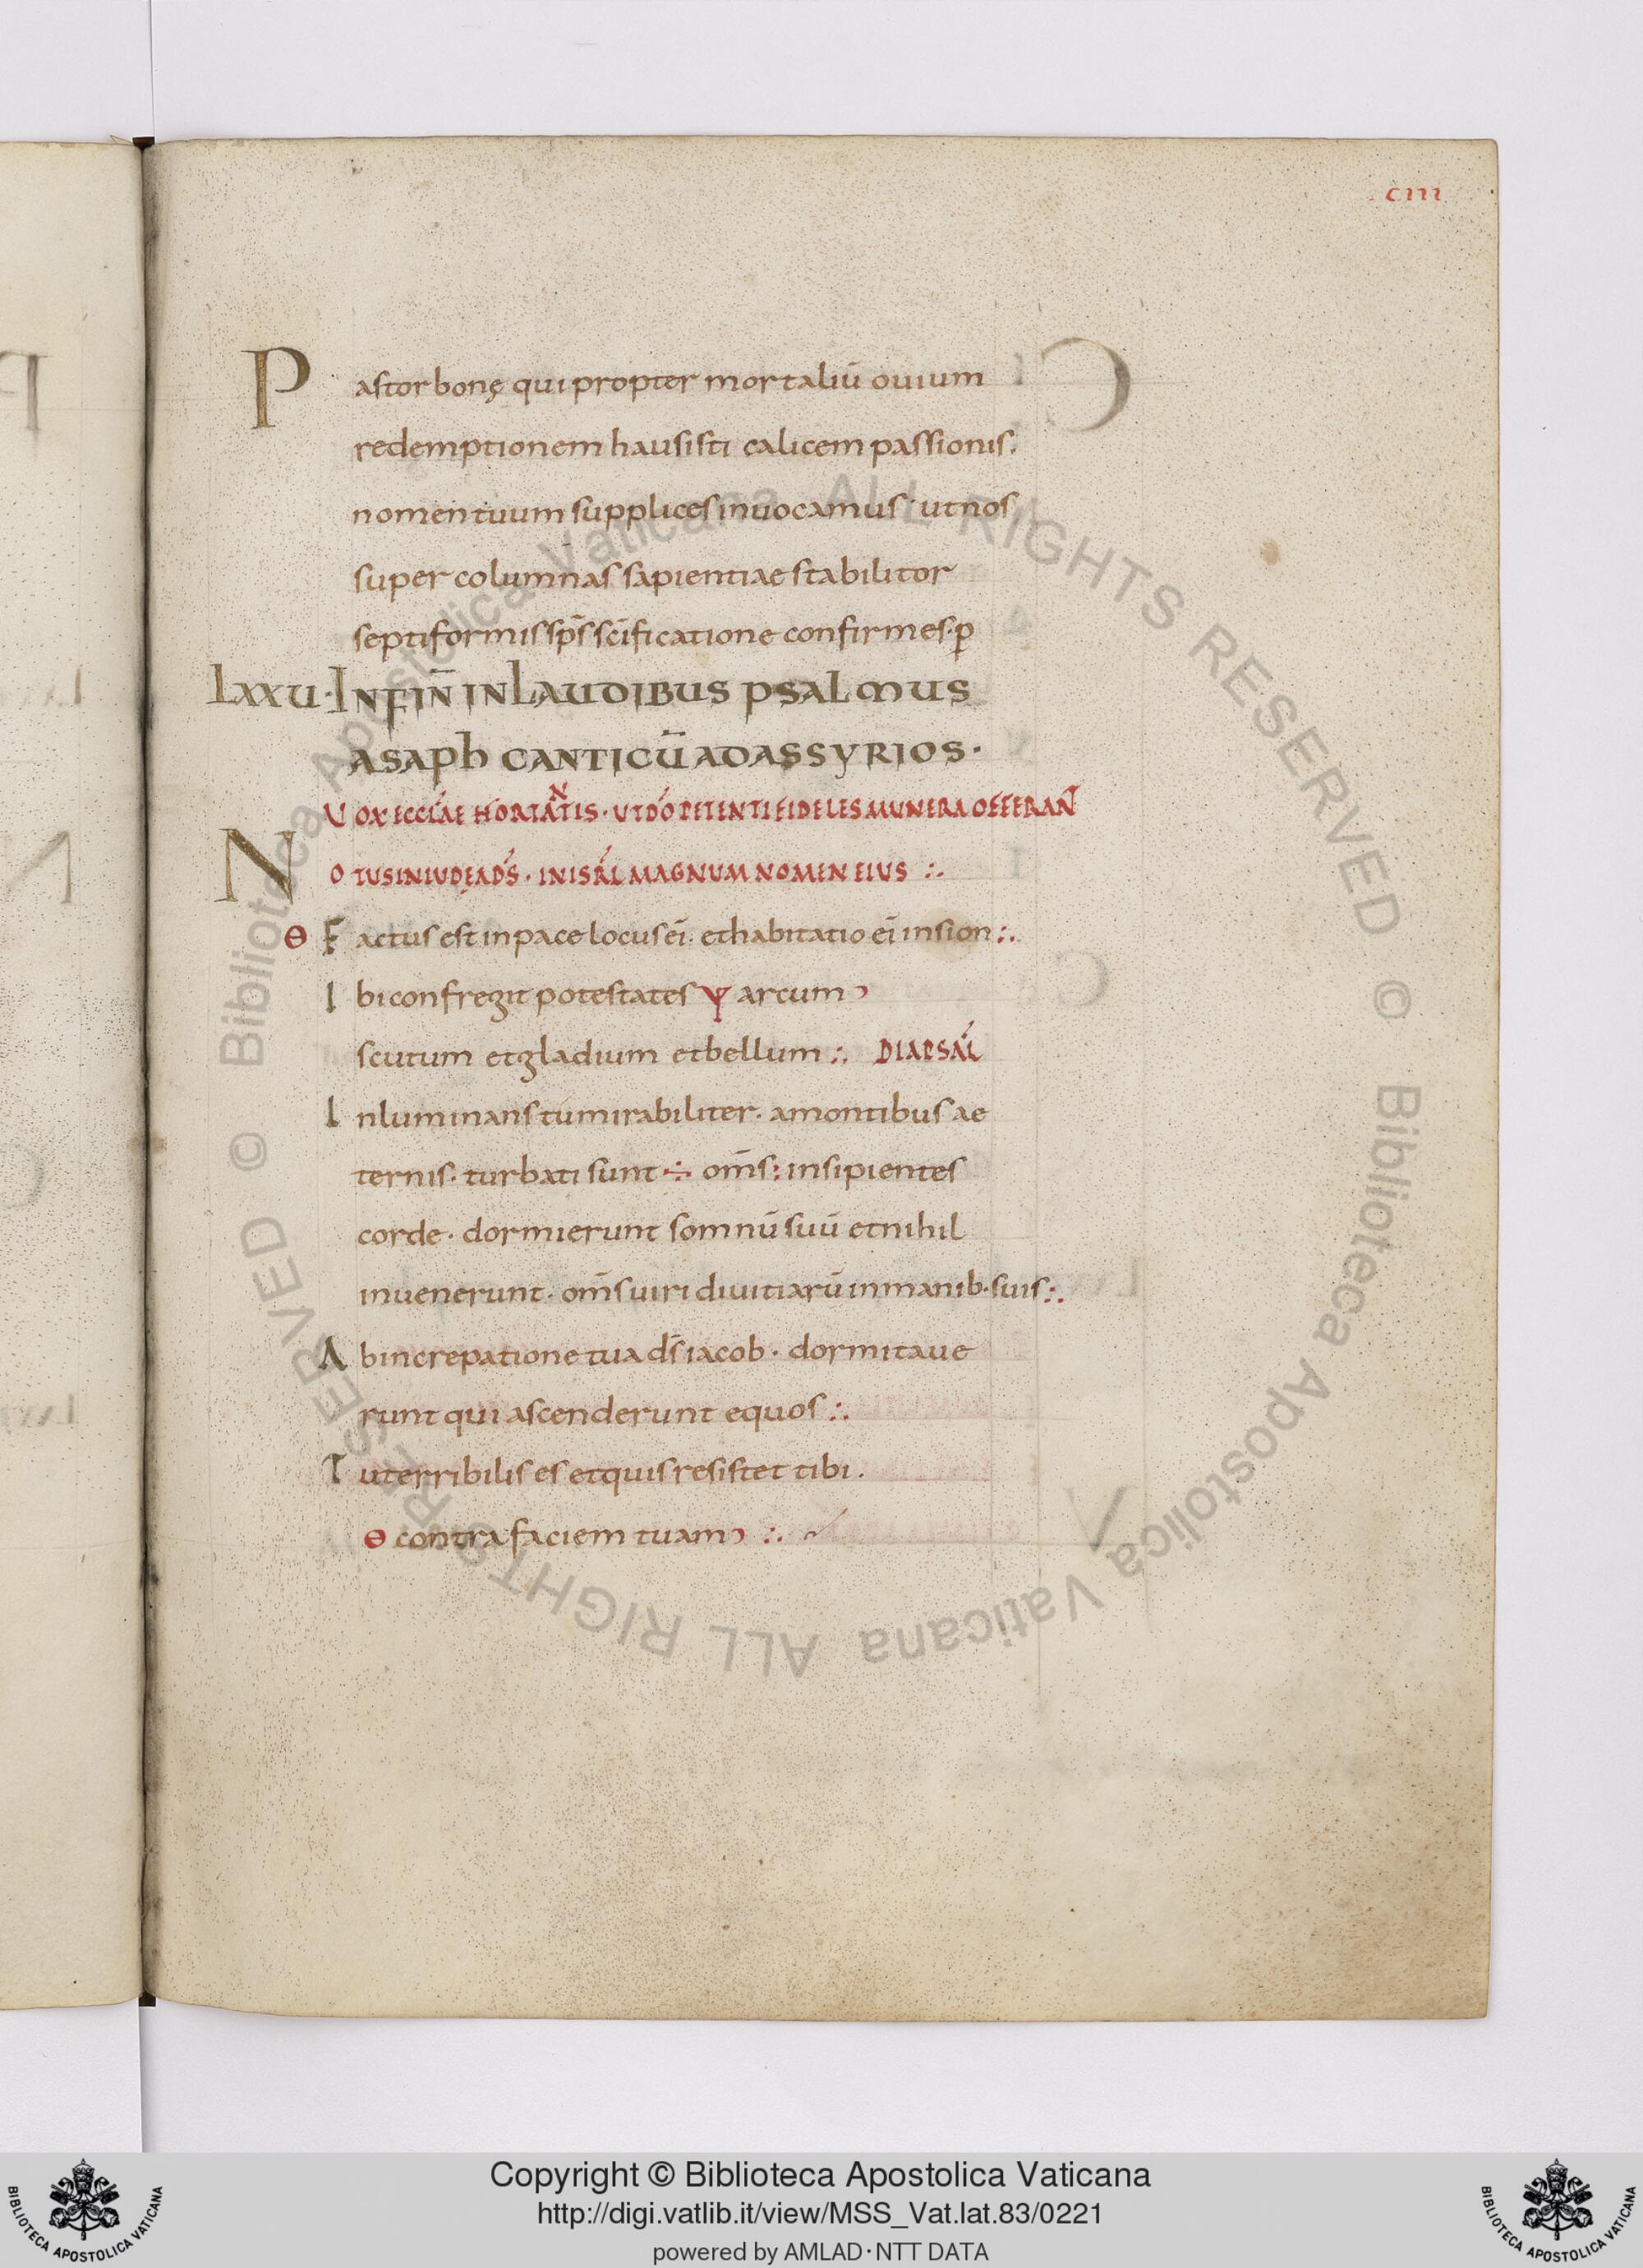 ciii
Pastor bonę qui propter mortaliū ouium
redemptionem hausisti calicem passionis.
nomen tuum supplices inuocamus · ut nos
super columnas sapientiae stabilitor
septiformis sp̄s sc̄ificatione confirmes · p̄
LXXU · IN FIN̄ IN LAUDIBUS PSALMUS
ASAPH CANTICŪ AD ASSYRIOS ·
UOX ECCLAE HORTANTIS · UT DŌ PETENTI FIDELES MUNERA OFFERANT
NOTUS IN IUDĘA DS̄ · IN ISRL̄ MAGNUM NOMEN EIUS :.
Θ Factus est in pace locus eī · et habitatio eī in sion :.
Ibi confregit potestates ψ arcum ɔ
scutum et gladium et bellum :. DIAPSAL̄
Inluminans tu mirabiliter · a montibus ae
ternis · turbati sunt ÷ om̄s : insipientes
corde · dormierunt somnū suū et nihil
inuenerunt · om̄s uiri diuitiarū in manib· suis :.
Ab increpatione tua ds̄ iacob · dormitaue
runt qui ascenderunt equos :.
Tu terribilis es et quis resistet tibi .
Θ contra faciem tuam ɔ :.
© Biblioteca Apostolica Vaticana ALL RIGHTS RESERVED
© Biblioteca Apostolica Vaticana ALL RIGHTS RESERVED
Copyright © Biblioteca Apostolica Vaticana
http://digi.vatlib.it/view/MSS_Vat.lat.83/0221
powered by AMLAD·NTT DATA
BIBLIOTECA APOSTOLICA VATICANA
BIBLIOTECA APOSTOLICA VATICANA